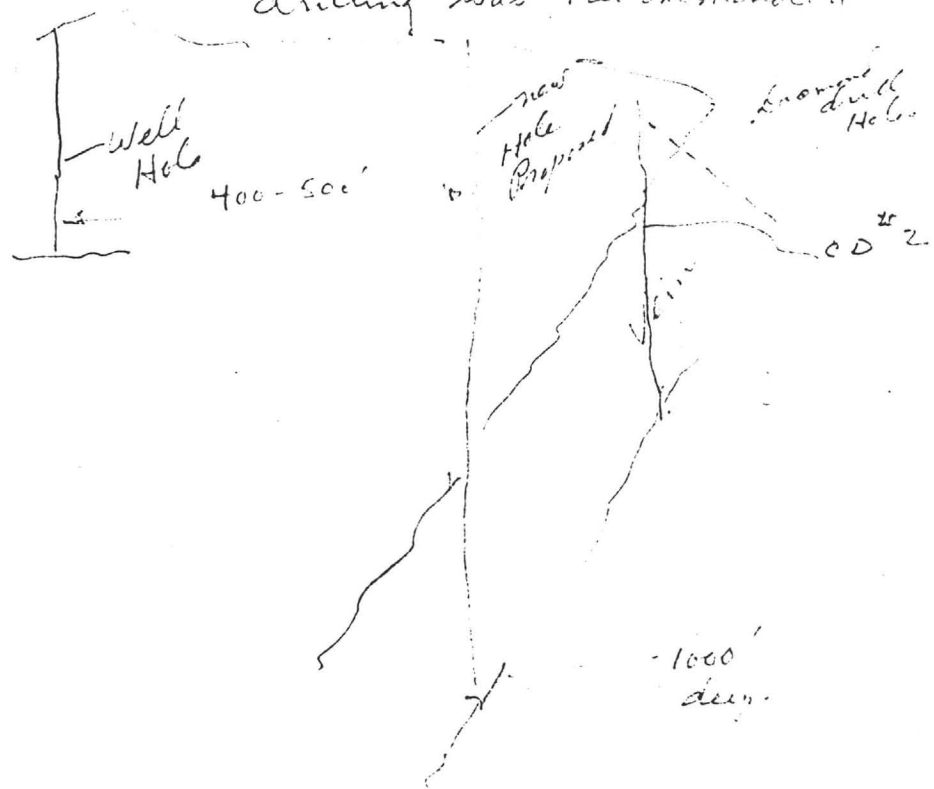 drilling was recommended
Well
Hole
400-500'
to
new
Hole
Proposed
drill
Hole
CD #2
1000'
deep.